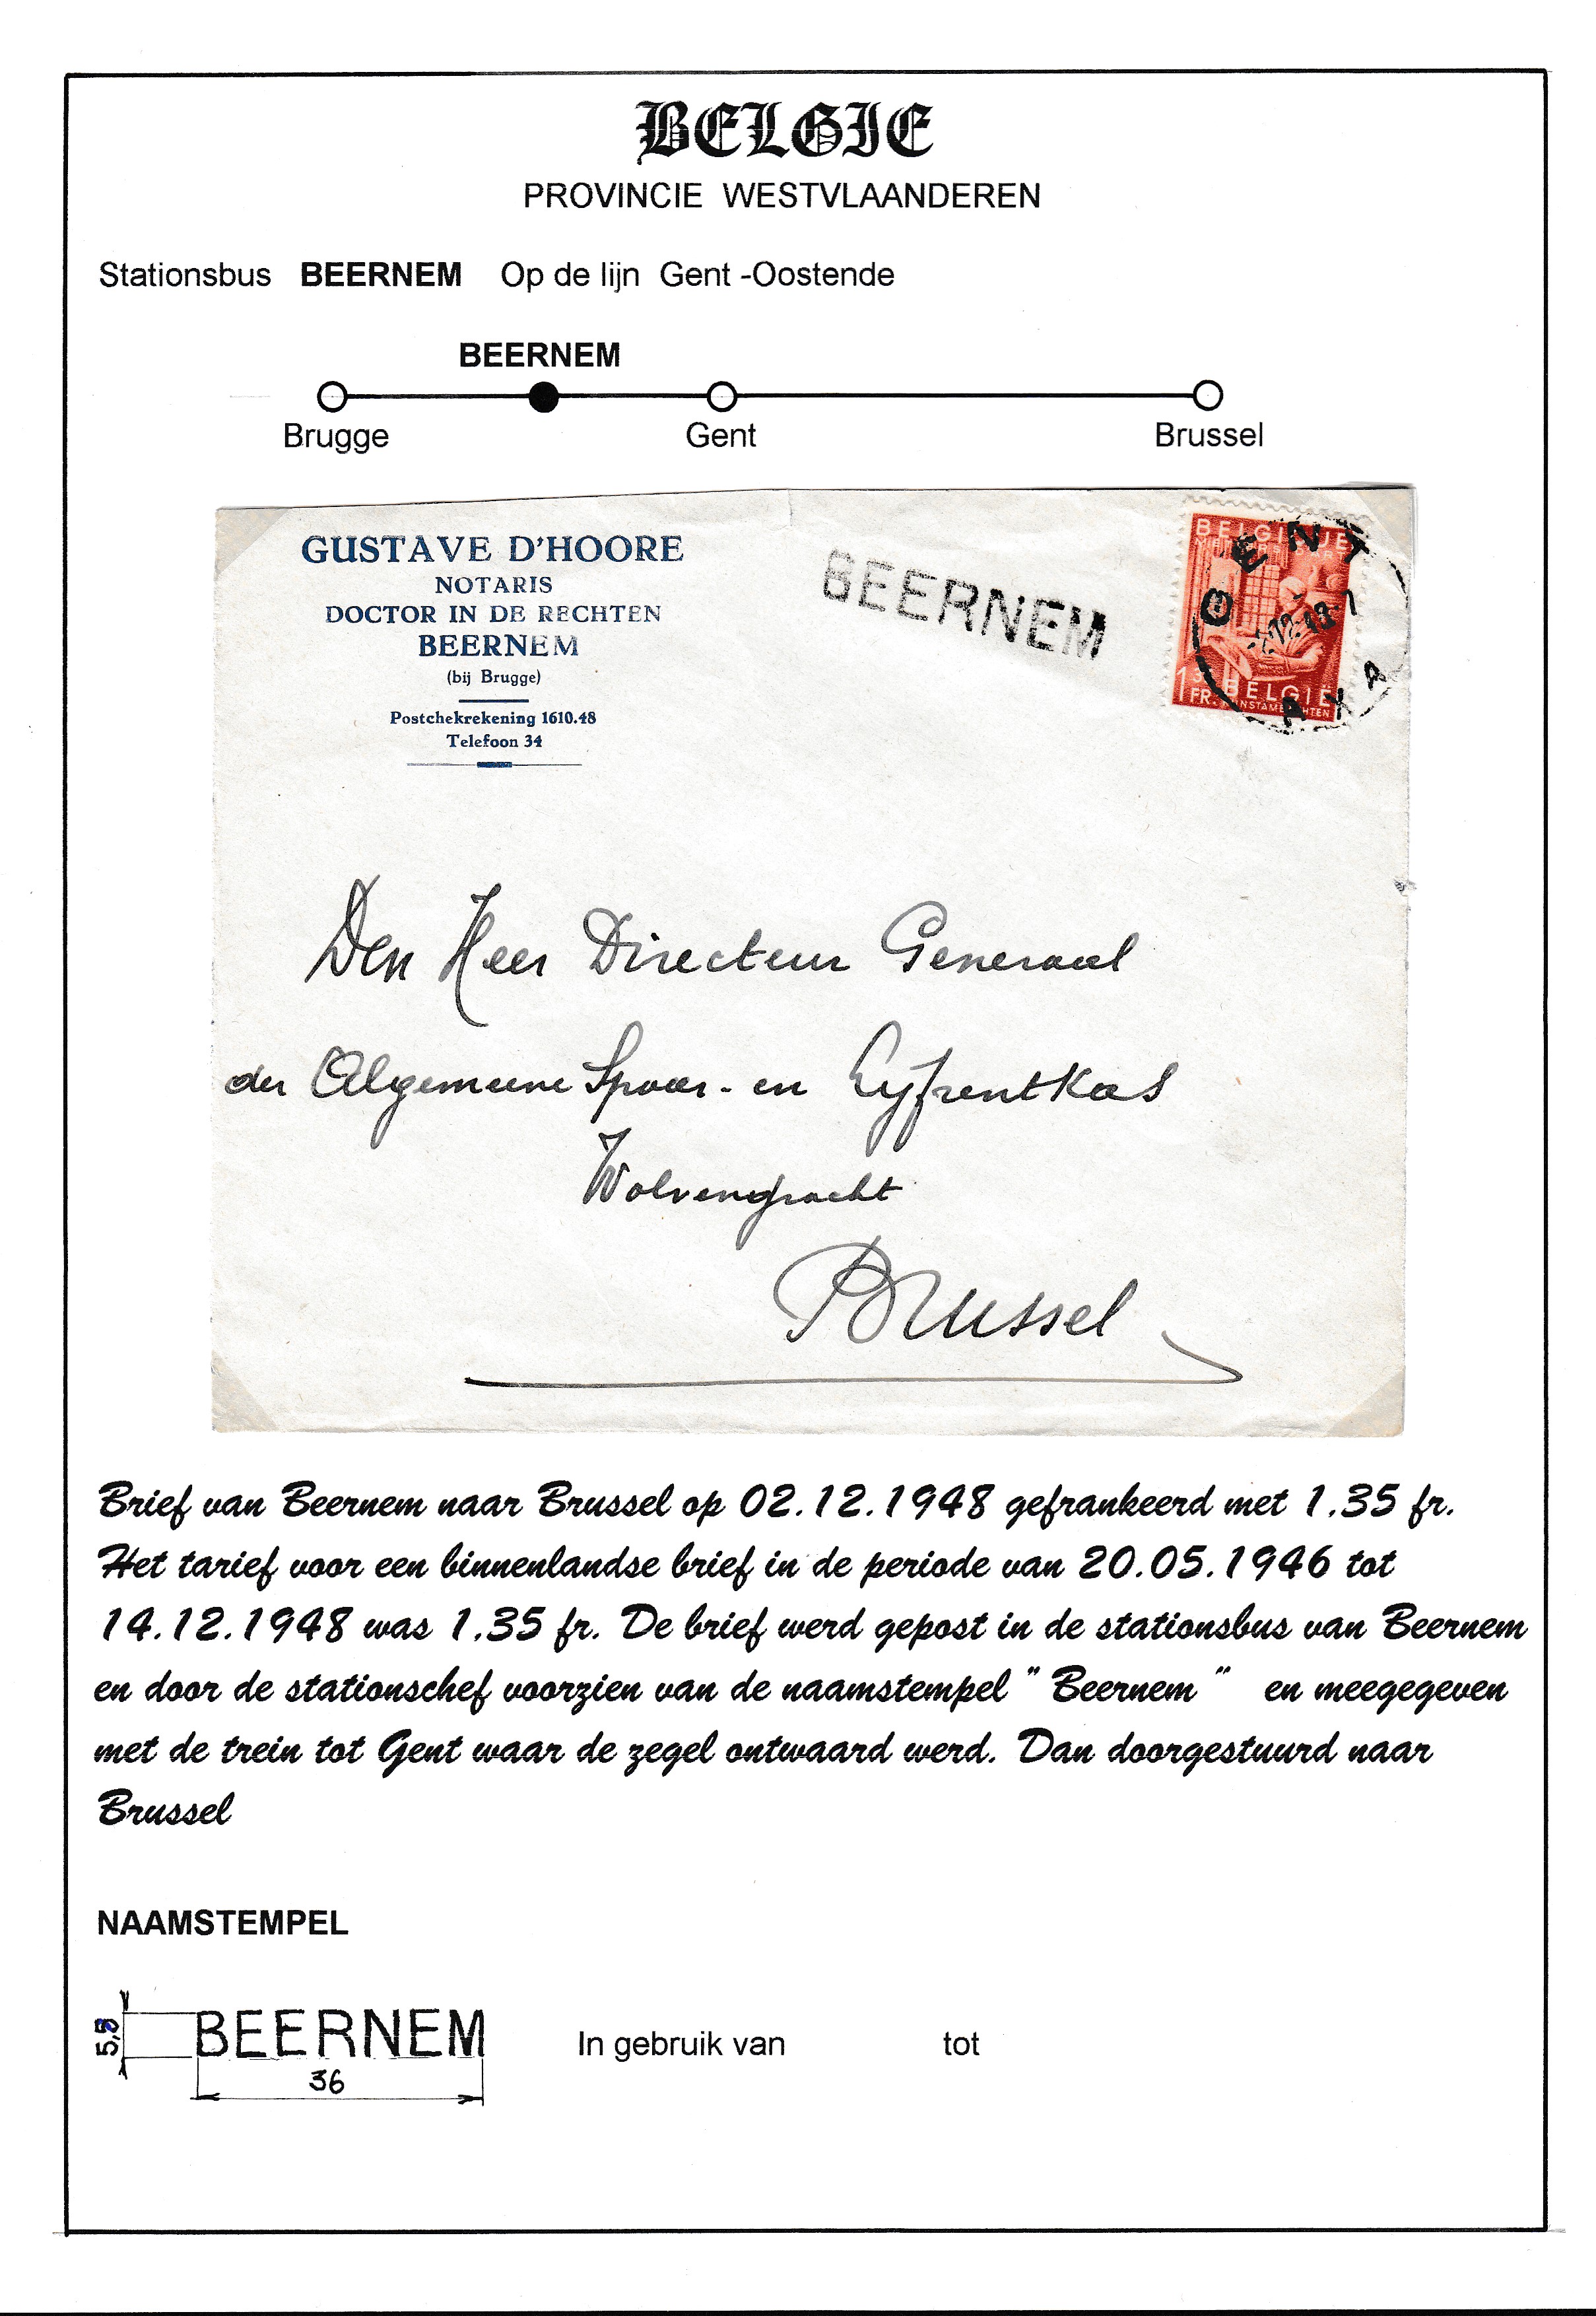 BELGIE
PROVINCIE WESTVLAANDEREN
Stationsbus BEERNEM Op de lijn Gent -Oostende
BEERNEM
Brugge Gent Brussel
GUSTAVE D'HOORE
NOTARIS
DOCTOR IN DE RECHTEN
BEERNEM
(bij Brugge)
Postchekrekening 1610.48
Telefoon 34
BEERNEM
BELGIQUE
GENT
BELGIË
1 FR.
Den Heer Directeur Generaal
der Algemeene Spaar- en Lyfrentkas
Wolvengracht
Brussel
Brief van Beernem naar Brussel op 02.12.1948 gefrankeerd met 1.35 fr.
Het tarief voor een binnenlandse brief in de periode van 20.05.1946 tot
14.12.1948 was 1.35 fr. De brief werd gepost in de stationsbus van Beernem
en door de stationschef voorzien van de naamstempel " Beernem " en meegegeven
met de trein tot Gent waar de zegel ontwaard werd. Dan doorgestuurd naar
Brussel
NAAMSTEMPEL
BEERNEM In gebruik van tot
36